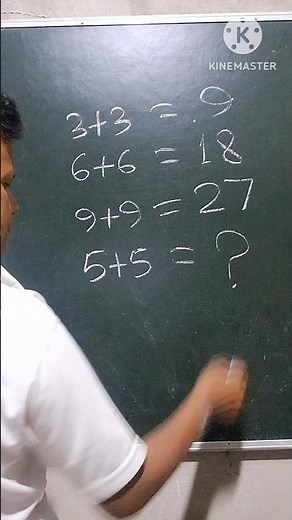 KINEMASTER
3+3 = 9
6+6 = 18
9+9 = 27
5+5 = ?